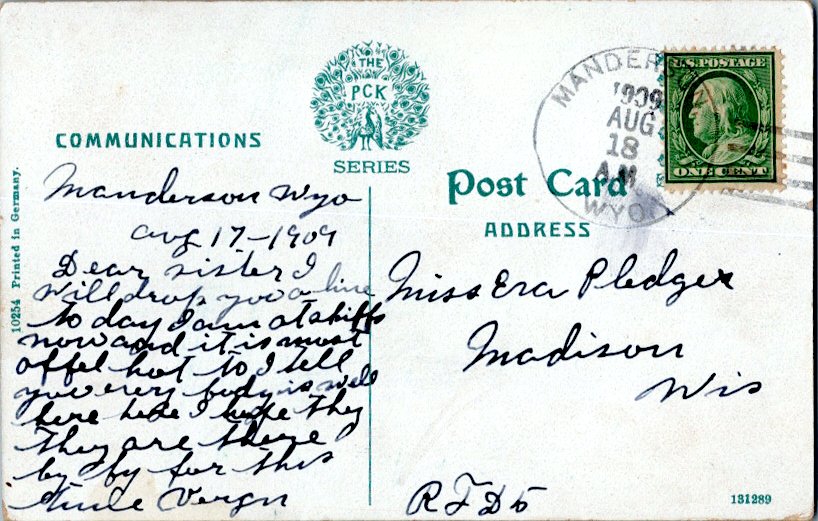 THE
PCK
SERIES
COMMUNICATIONS
Post Card
ADDRESS
MANDERSON
1909
AUG
18
A.M.
WYO.
U.S. POSTAGE
ONE CENT
10254 Printed in Germany.
Manderson Wyo
Aug 17-1909
Dear sister I
will drop you a line
to day I am at
now and it is most
offel hot to I tell
you every body is well
here I hope they
they are there
by by for this
time
Miss Era Pledger
Madison
Wis
RFD 5
131289